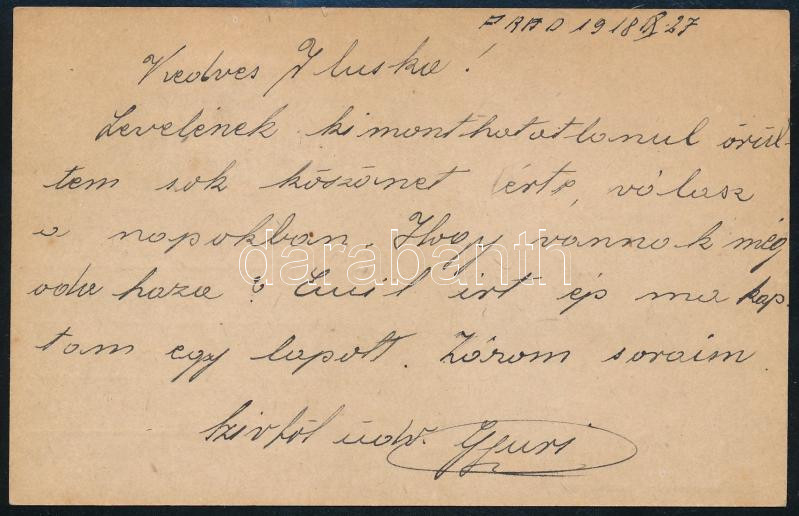 ARAD 1918 IX. 27
Kedves Iluska!
Levelének kimonthatatlanul örül-
tem sok köszönet érte, válasz
a napokban. Hogy vannak még
oda haza? Emil irt ép ma kap-
tam egy lapott. Zárom soraim
Szivből üdv. Gyuri
darabanth